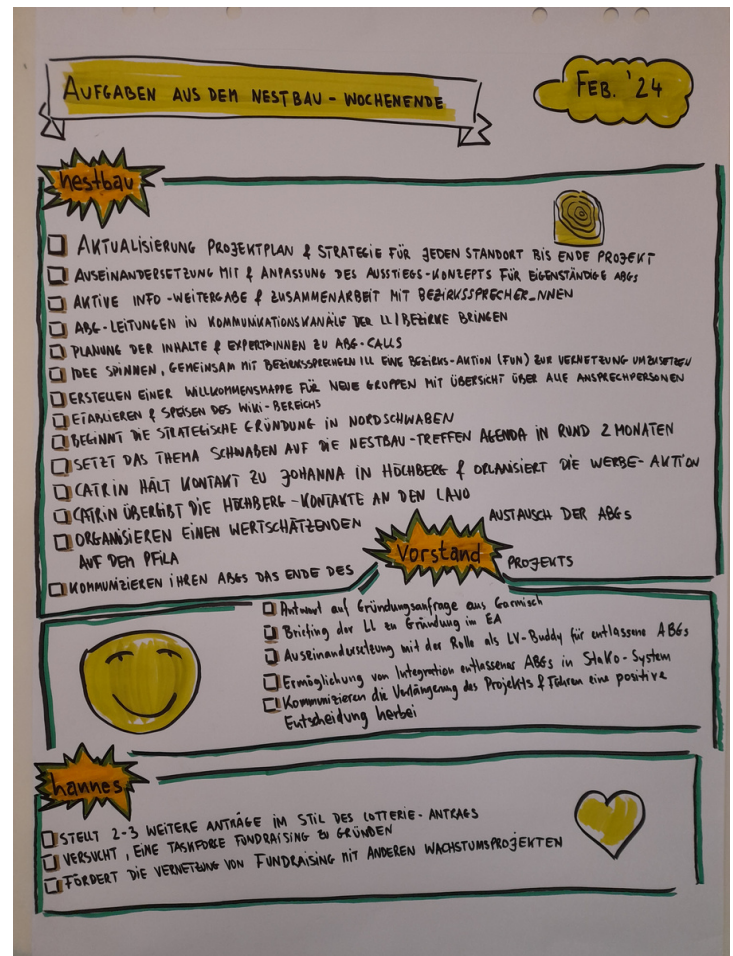 AUFGABEN AUS DEM NESTBAU - WOCHENENDE
FEB. '24
nestbau
AKTUALISIERUNG PROJEKTPLAN & STRATEGIE FÜR JEDEN STANDORT BIS ENDE PROJEKT
AUSEINANDERSETZUNG MIT & ANPASSUNG DES AUSSTIEGS-KONZEPTS FÜR EIGENSTÄNDIGE ABGs
AKTIVE INFO-WEITERGABE & ZUSAMMENARBEIT MIT BEZIRKSSPRECHER_NNEN
ABG-LEITUNGEN IN KOMMUNIKATIONSKANÄLE DER LL/BEZIRKE BRINGEN
PLANUNG DER INHALTE & EXPERT*INNEN ZU ABG-CALLS
IDEE SPINNEN, GEMEINSAM MIT BEZIRKSSPRECHERN/LL EINE BEZIRKS-AKTION (FUN) ZUR VERNETZUNG UMZUSETZEN
ERSTELLEN EINER WILLKOMMENSMAPPE FÜR NEUE GRUPPEN MIT ÜBERSICHT ÜBER ALLE ANSPRECHPERSONEN
ETABLIEREN & SPEISEN DES WIKI-BEREICHS
BEGINNT DIE STRATEGISCHE GRÜNDUNG IN NORDSCHWABEN
SETZT DAS THEMA SCHWABEN AUF DIE NESTBAU-TREFFEN AGENDA IN RUND 2 MONATEN
CATRIN HÄLT KONTAKT ZU JOHANNA IN HÖCHBERG & ORGANISIERT DIE WERBE-AKTION
CATRIN ÜBERGIBT DIE HÖCHBERG-KONTAKTE AN DEN LAVO
ORGANISIEREN EINEN WERTSCHÄTZENDEN AUSTAUSCH DER ABGs
AUF DEM PFILA
KOMMUNIZIEREN IHREN ABGs DAS ENDE DES PROJEKTS
Vorstand
Antwort auf Gründungsanfrage aus Garmisch
Briefing der LL zu Gründung in EA
Auseinandersetzung mit der Rolle als LV-Buddy für entlassene ABGs
Ermöglichung von Integration entlassener ABGs in StaKo-System
Kommunizieren die Verlängerung des Projekts & führen eine positive
Entscheidung herbei
hannes
STELLT 2-3 WEITERE ANTRÄGE IM STIL DES LOTTERIE-ANTRAGS
VERSUCHT, EINE TASKFORCE FUNDRAISING ZU GRÜNDEN
FÖRDERT DIE VERNETZUNG VON FUNDRAISING MIT ANDEREN WACHSTUMSPROJEKTEN